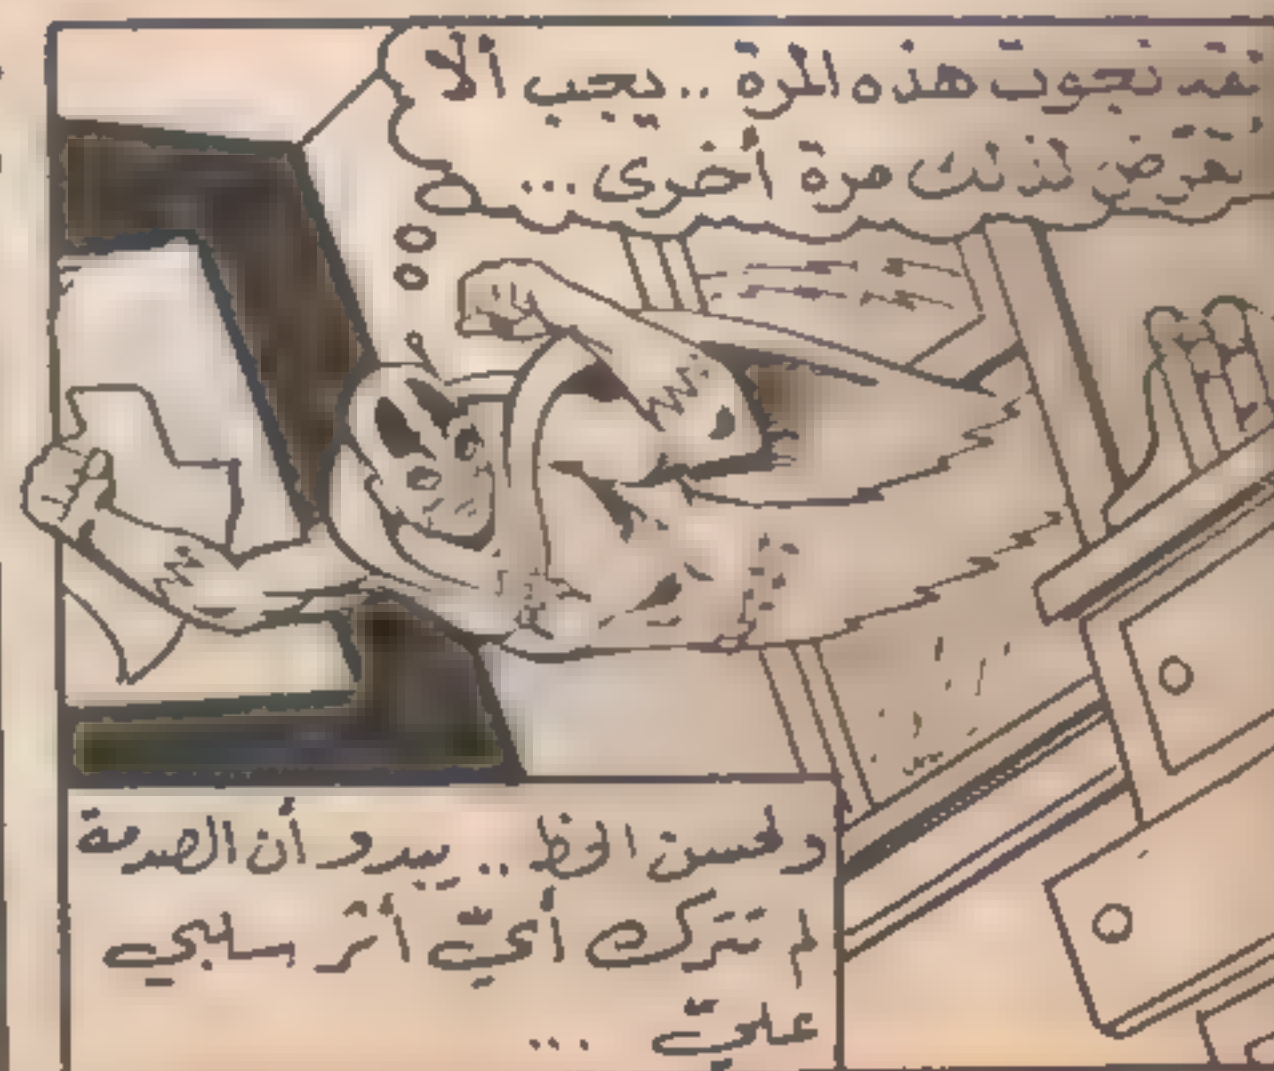 لقد نجوت هذه المرة .. يجب ألا
أتعرض لذلك مرة أخرى ...
ولحسن الحظ .. يبدو أن الصدمة
لم تترك أيّ أثر سلبي
عليّ ...